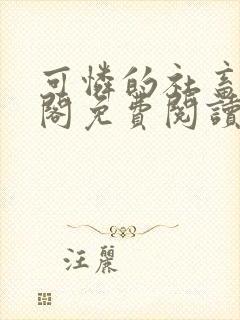 可憐的社畜
閣免費閱讀
汪麗